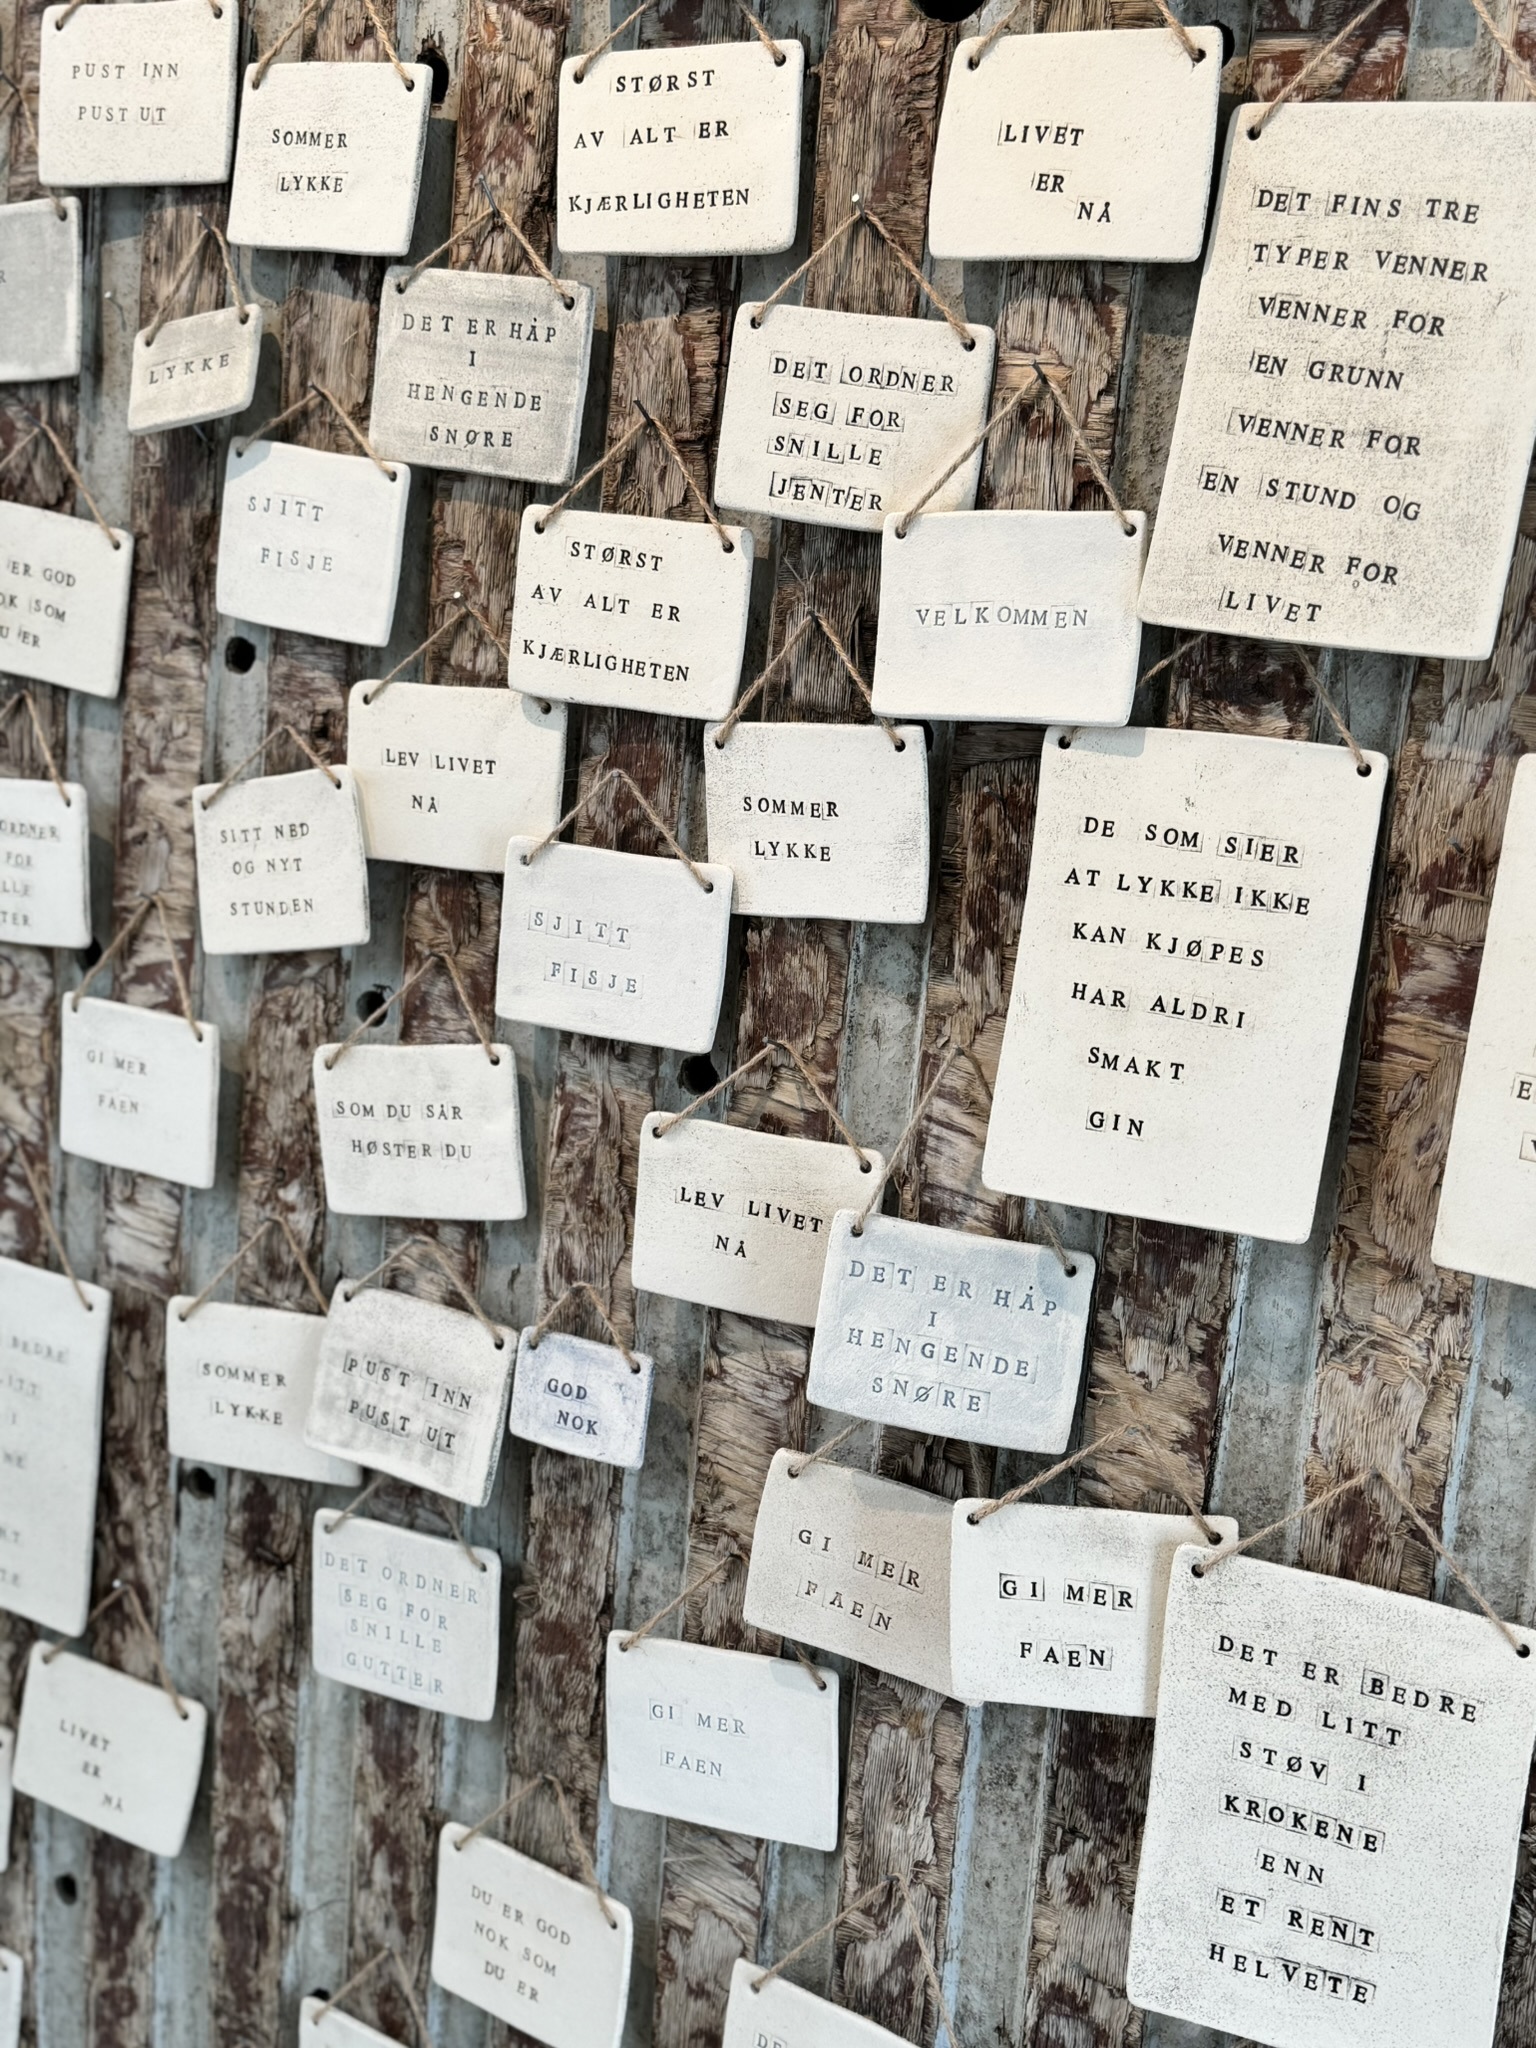 PUST INN
PUST UT
SOMMER
LYKKE
STØRST
AV ALT ER
KJÆRLIGHETEN
LIVET
ER
NÅ
DET FINS TRE
TYPER VENNER
VENNER FOR
EN GRUNN
VENNER FOR
EN STUND OG
VENNER FOR
LIVET
LYKKE
DET ER HÅP
I
HENGENDE
SNØRE
DET ORDNER
SEG FOR
SNILLE
JENTER
SJITT
FISJE
STØRST
AV ALT ER
KJÆRLIGHETEN
VELKOMMEN
ER GOD
SOM
ER
LEV LIVET
NÅ
SOMMER
LYKKE
DE SOM SIER
AT LYKKE IKKE
KAN KJØPES
HAR ALDRI
SMAKT
GIN
ORDNER
FOR
SITT NED
OG NYT
STUNDEN
SJITT
FISJE
GI MER
FAEN
SOM DU SÅR
HØSTER DU
LEV LIVET
NÅ
DET ER HÅP
I
HENGENDE
SNØRE
BEDRE
SOMMER
LYKKE
PUST INN
PUST UT
GOD
NOK
GI MER
FAEN
GI MER
FAEN
DET ORDNER
SEG FOR
SNILLE
GUTTER
DET ER BEDRE
MED LITT
STØV I
KROKENE
ENN
ET RENT
HELVETE
LIVET
ER
NÅ
GI MER
FAEN
DU ER GOD
NOK SOM
DU ER